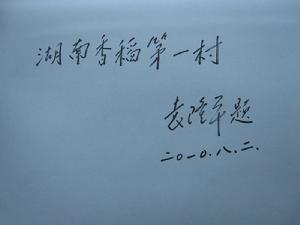 湖南香稻第一村
袁隆平题
二〇一〇.八.二.